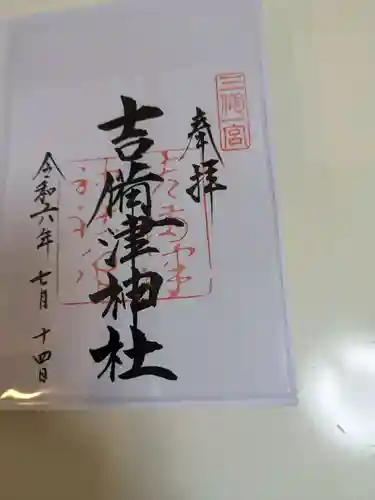 三備一宮
奉拝
吉備津神社
令和六年七月十四日